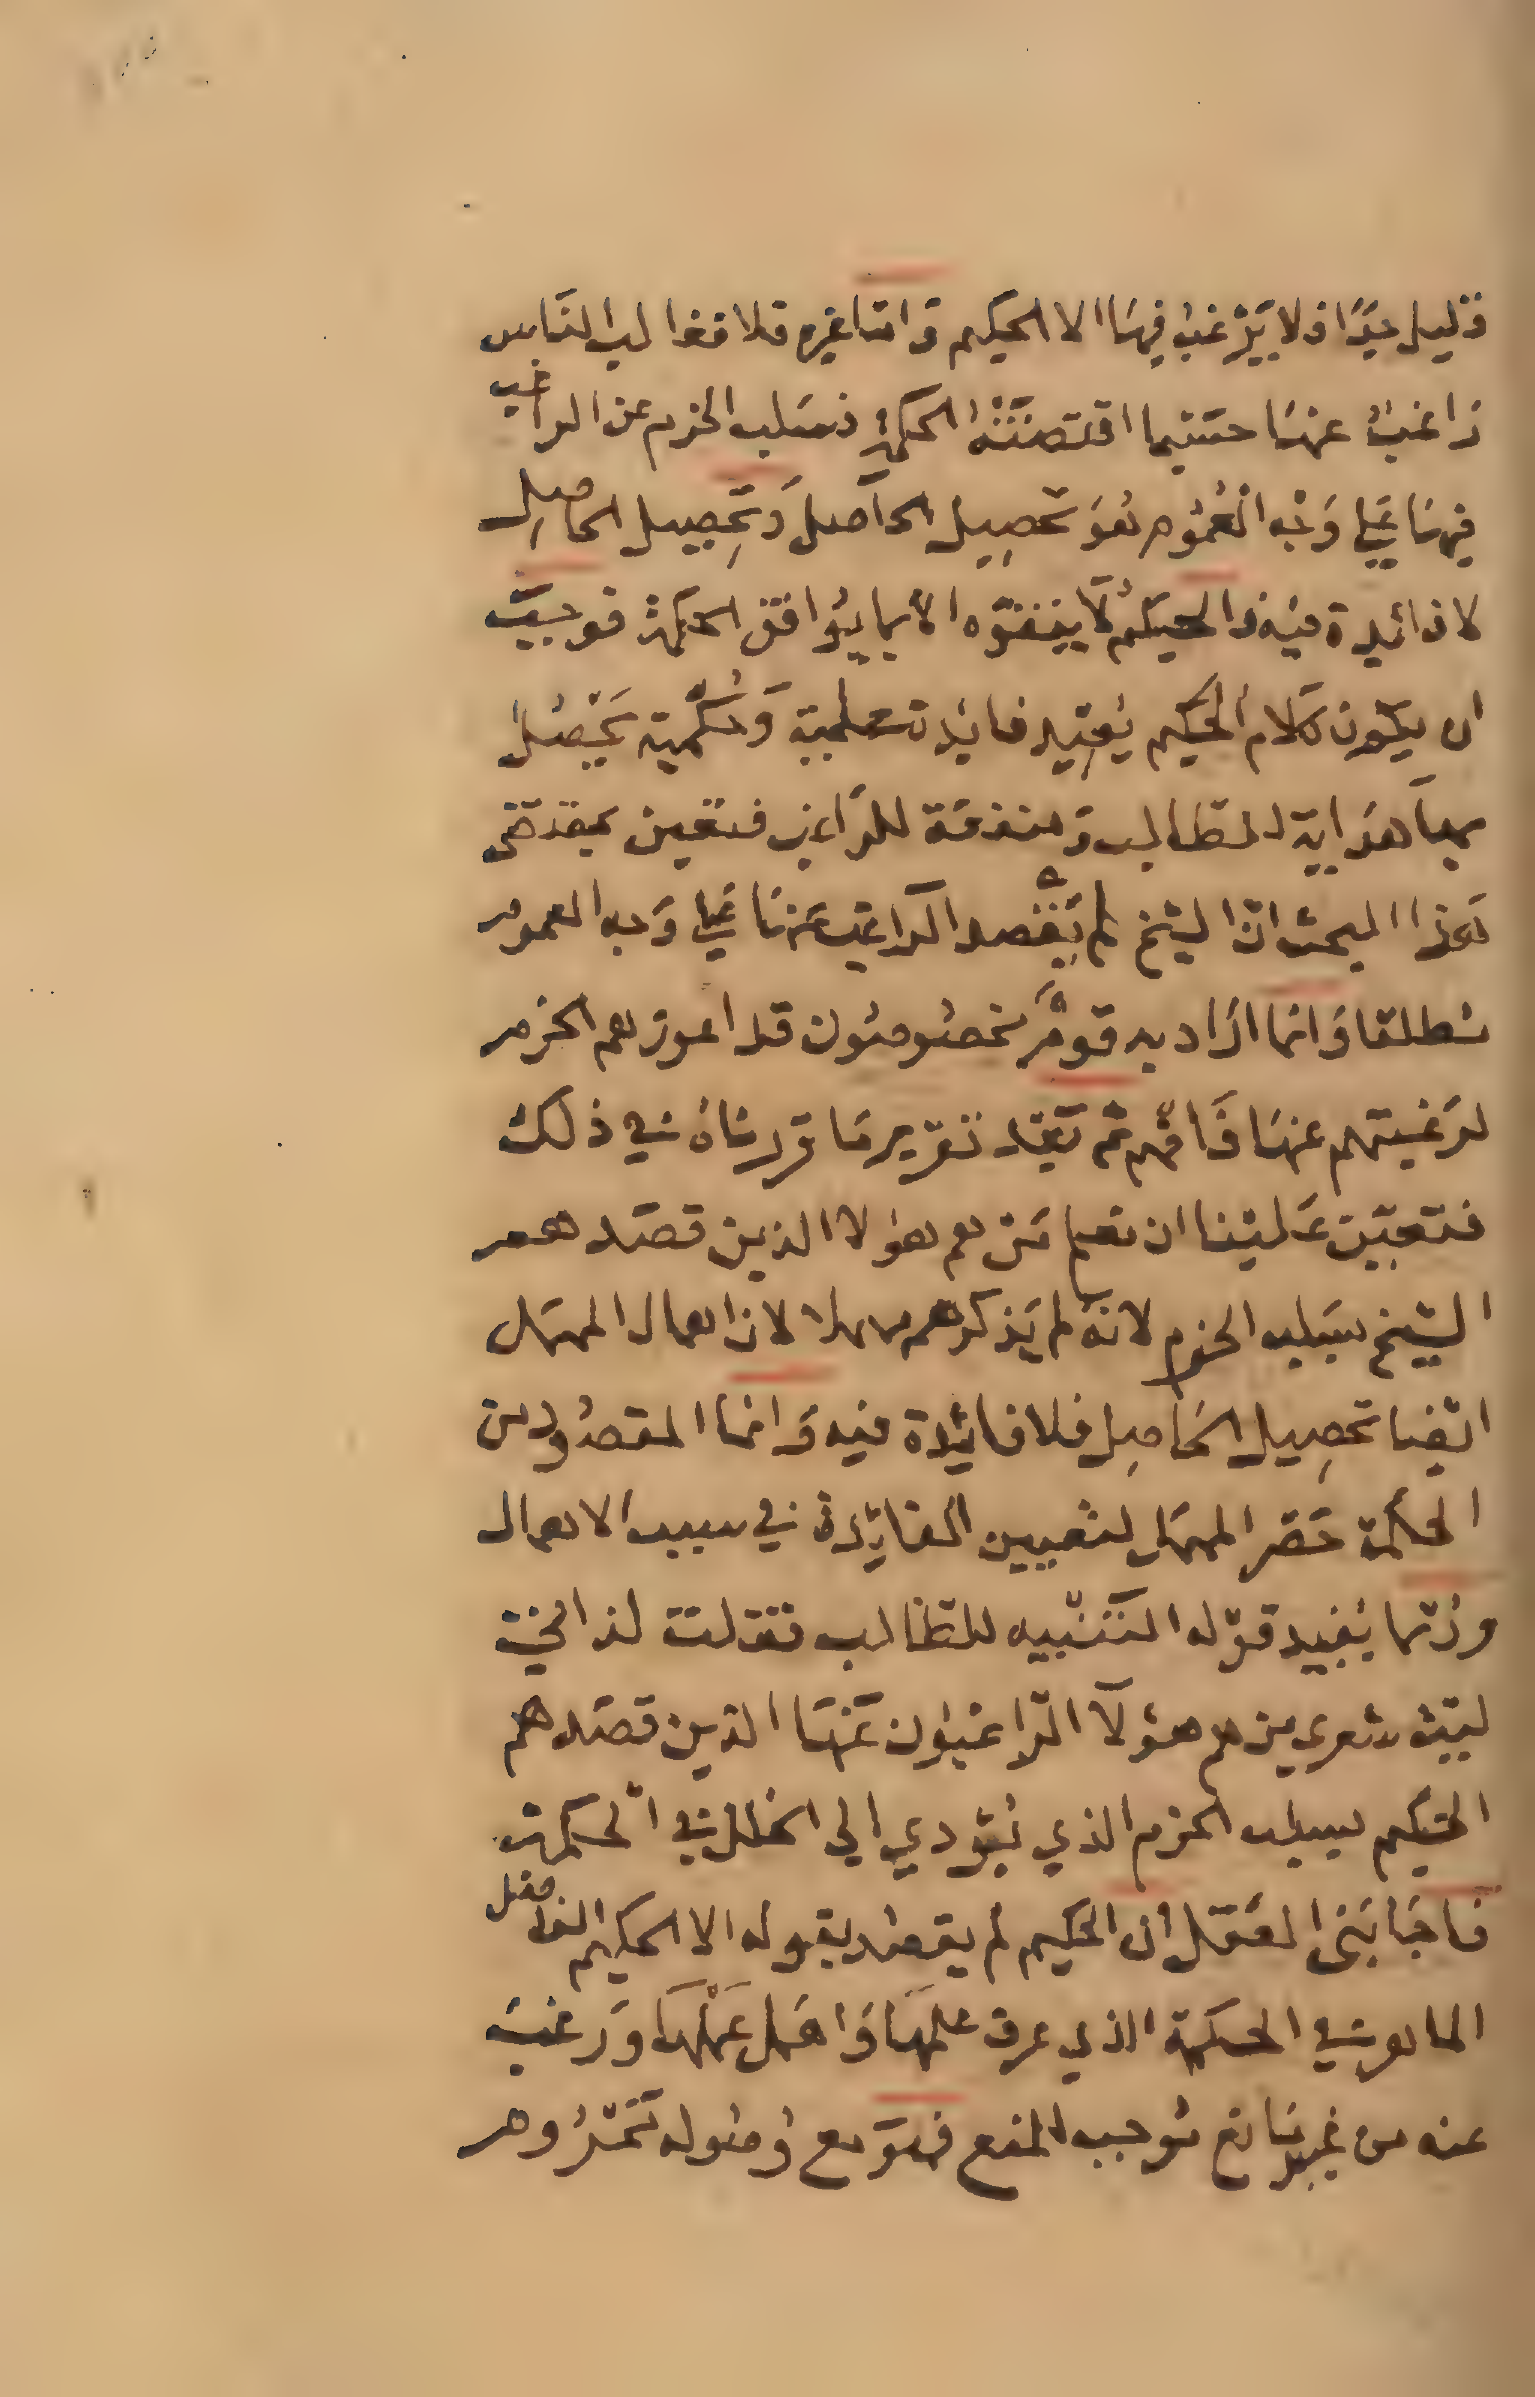 قليل جدًا فلا يَرْغبُ فيهَا الا الحكيم وَامّا غيره فلا فغالب النَاس
رَاغبُ عنهَا حسَبما اقتضَتْهُ الحكمةُ فسَلب الحزم عن الراغب
فيهَا عَلي وَجْه الْعُمُوم هُوَ تحصِيل الحاصل وَتحِصيل الحاصِل
لا فائدة فيْه وَالحكيمُ لَا يَتفَوّه الا بما يُوافق الحكمة فوجبَ
ان يكون كلام الحكيم يُفيد فايُدة علمية وَحُكْمية يَحْصُل
بهاَ هدَاية للطالب وَمنفعَة للرَاغب فتعين بمقتضَى
هَذا البحث انّ الشيخ لم يَقصد الراغب عَنهَا عَلي وَجه العموم
مُطلقا وَانما ارَاد به قومٌ مخصُوصُون قد اعوزهم الحزم
لرَغبتهم عنهَا فَافهم ثم بَعْد تقرير مَا قررنَاهُ في ذلك
فتعَيّن عَليْنا ان نعلم مَن هم هؤلا الذين قصَدهم
الشيخ بسَلب الحزم لانهُ لم يَذكرهم مهملا لان اهمال المهمَل
ايْضا تحصِيل الحَاصِل فلا فائدة فيه وَانما المقصُود من
الحكمة حَصْر المهمَل لتعيين الفايُدة في سبب الاهمال
ورُبّما يُفيد قوْله التَنْبيه للطَالب فقلت لذا اخي
ليْتَ شعري من هم هؤلَا الرّاغبُون عَنهَا الذين قصَدهم
الحَكيم بسلب الحزم الذي يُؤدي الي الخلل في الحكمة
فاجَابَني العَقل ان الحكيم لم يقصُد بقوله الا الحكيم الفاضل
الماهر في الحكمة الذي عرف علمهَا وَاهَمل عَمَلْهَا وَرَغبَ
عنه من غير مَانع يُوجب المنع فهوَ مع وُصُوله مَحْرُوم